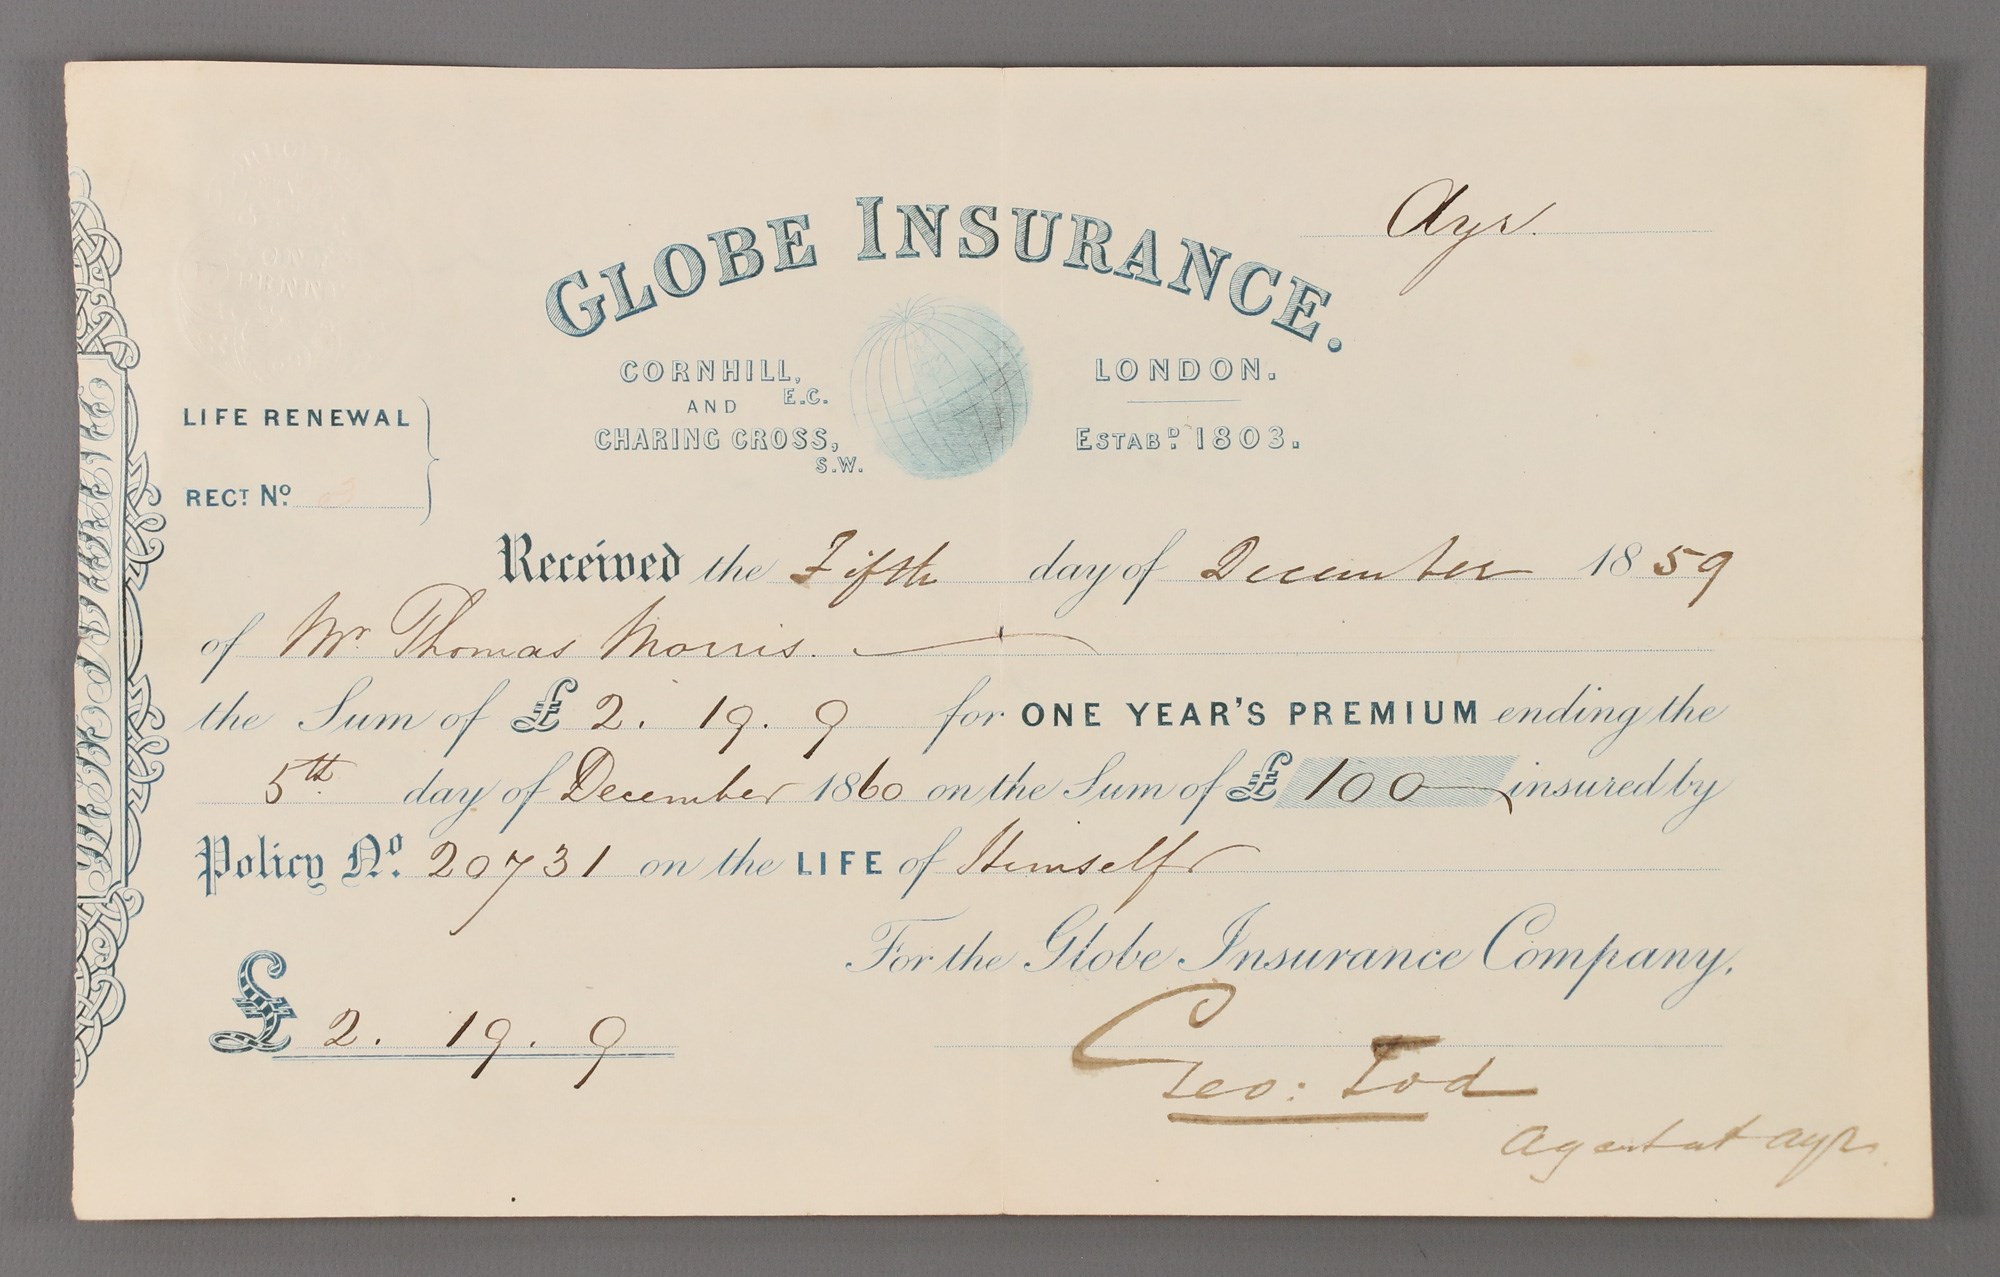 Ayr.
GLOBE INSURANCE.
CORNHILL, E.C.
AND
CHARING CROSS, S.W.
LONDON.
ESTABD. 1803.
ONE
PENNY
LIFE RENEWAL
RECT No.
Received the Fifth day of December 1859
of Mr. Thomas Morris.
the Sum of £ 2. 19. 9 for ONE YEAR'S PREMIUM ending the
5th day of December 1860 on the Sum of £ 100 insured by
Policy No. 20731 on the LIFE of Himself
For the Globe Insurance Company,
£ 2. 19. 9
Geo: Tod
Agent at Ayr.